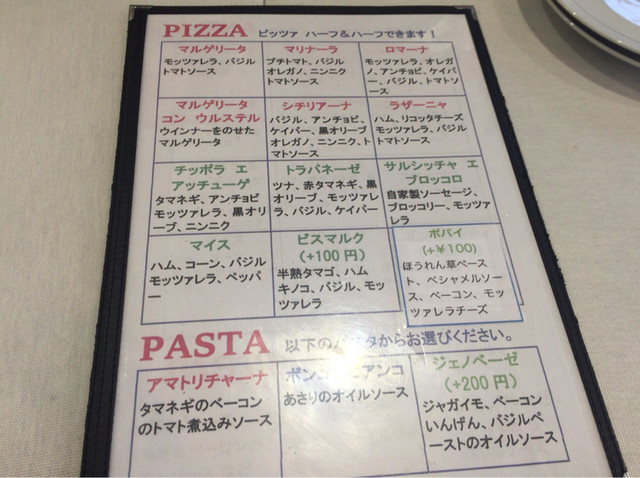 PIZZA ピッツァ ハーフ＆ハーフできます！
マルゲリータ
モッツァレラ、バジル
トマトソース
マリナーラ
プチトマト、バジル
オレガノ、ニンニク
トマトソース
ロマーナ
モッツァレラ、オレガ
ノ、アンチョビ、ケイパ
ー、バジル、トマトソ
ース
マルゲリータ
コン ウルステル
ウインナーをのせた
マルゲリータ
シチリアーナ
バジル、アンチョビ、
ケイパー、黒オリーブ
オレガノ、ニンニク、ト
マトソース
ラザーニャ
ハム、リコッタチーズ
モッツァレラ、バジル
トマトソース
チッポラ エ
アッチューゲ
タマネギ、アンチョビ
モッツァレラ、黒オリ
ーブ、ニンニク
トラパネーゼ
ツナ、赤タマネギ、黒
オリーブ、モッツァレ
ラ、バジル、ケイパー
サルシッチャ エ
ブロッコロ
自家製ソーセージ、
ブロッコリー、モッツァ
レラ
マイス
ハム、コーン、バジル
モッツァレラ、ペッパ
ー
ビスマルク
（+100円）
半熟タマゴ、ハム
キノコ、バジル、モッ
ツァレラ
ポパイ
（+￥100）
ほうれん草ペース
ト、ベシャメルソー
ス、ベーコン、モッ
ツァレラチーズ
PASTA 以下のパスタからお選びください。
アマトリチャーナ
タマネギのベーコン
のトマト煮込みソース
ボンゴ ビアンコ
あさりのオイルソース
ジェノベーゼ
（+200円）
ジャガイモ、ベーコン
いんげん、バジルペ
ーストのオイルソース